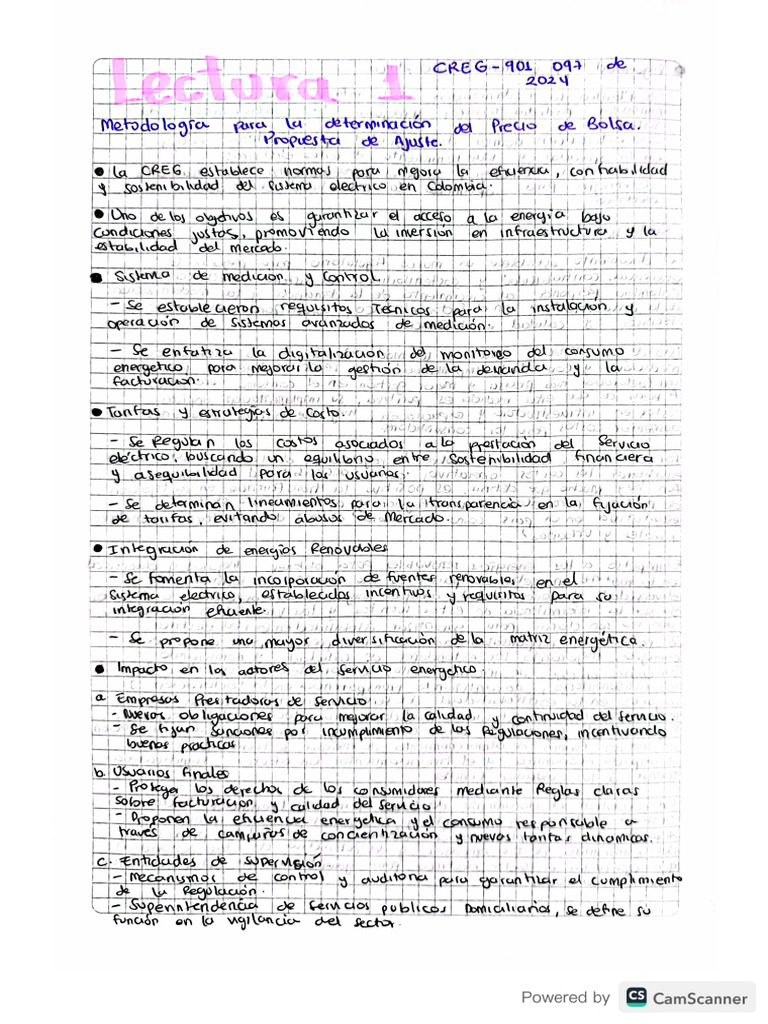 Lectura 1
CREG-901 097 de
2024
Metodología para la determinación del Precio de Bolsa.
Propuesta de Ajuste.
• La CREG establece normas para mejora la eficiencia, confiabilidad
y sostenibilidad del sistema electrico en Colombia.
• Uno de los objetivos es garantizar el acceso a la energía bajo
condiciones justos, promoviendo la inversión en infraestructura y la
estabilidad del mercado.
• Sistema de medición y control
- Se establecieron requisitos Técnicos para la instalación y
operación de sistemas avanzados de medición.
- Se enfatiza la digitalización del monitoreo del consumo
energetico, para mejorar la gestión de la demanda y la
facturación.
• Tarifas y estrategias de costo.
- Se Regulan los costos asociados a la prestación del Servicio
eléctrico, buscando un equilibrio entre sostenibilidad financiera
y asequibilidad para los usuarios.
- Se determinan lineamientos para la transparencia en la fijación
de tarifas, evitando abusos de mercado.
• Integración de energías Renovables
- Se fomenta la incorporación de fuentes renovables en el
Sistema electrico, establecidos incentivos y requisitos para su
integración eficiente.
- Se propone una mayor diversificación de la matriz energética.
• Impacto en los actores del servicio energetico.
a. Empresas Prestadoras de Servicio
- Nuevas obligaciones para mejorar la calidad y continuidad del servicio.
- Se fijan sanciones por incumplimiento de las Regulaciones, incentivando
buenas practicas
b. Usuarios finales
- Protega los derechos de los consumidores mediante Reglas claras
sobre facturación y calidad del servicio
- Proponen la eficiencia energetica y el consumo responsable a
través de campañas de concientización y nuevas tarifas dinamicas.
c. Entidades de supervisión
- Mecanismos de control y auditoria para garantizar el cumplimiento
de la Regulación.
- Superintendencia de servicios publicos Domiciliarios, se define su
función en la vigilancia del sector.
Powered by CS CamScanner